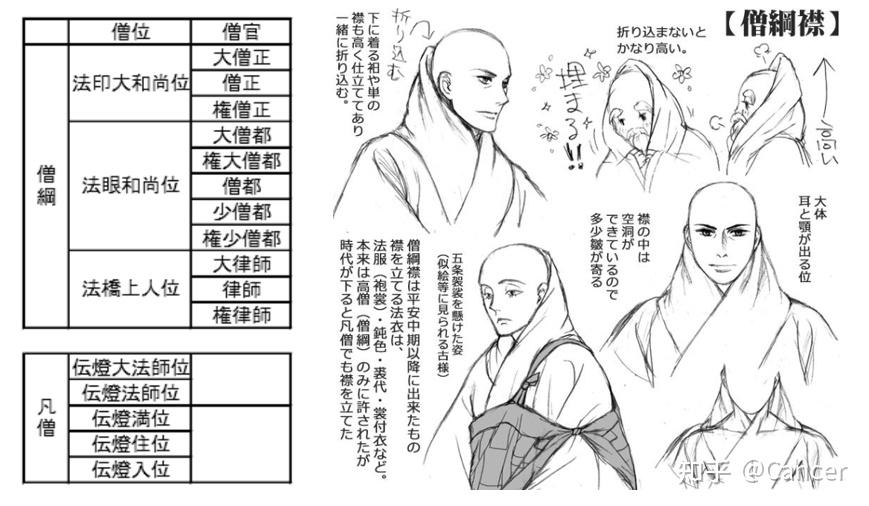 僧位 僧官
僧綱
法印大和尚位
大僧正
僧正
権僧正
法眼和尚位
大僧都
権大僧都
僧都
少僧都
権少僧都
法橋上人位
大律師
律師
権律師
凡僧
伝燈大法師位
伝燈法師位
伝燈満位
伝燈住位
伝燈入位
【僧綱襟】
下に着る衵や単の
襟も高く仕立ててあり
一緒に折り込む。
折り込む
折り込まないと
かなり高い。
埋まる!!
高い
大体
耳と顎が出る位
襟の中は
空洞が
できているので
多少皺が寄る
五条袈裟を懸けた姿
（似絵等に見られる古様）
僧綱襟は平安中期以降に出来たもの
襟を立てる法衣は、
法服（袍裳）・鈍色・裘代・裳付衣など。
本来は高僧（僧綱）のみに許されたが
時代が下ると凡僧でも襟を立てた
知乎 @Cancer